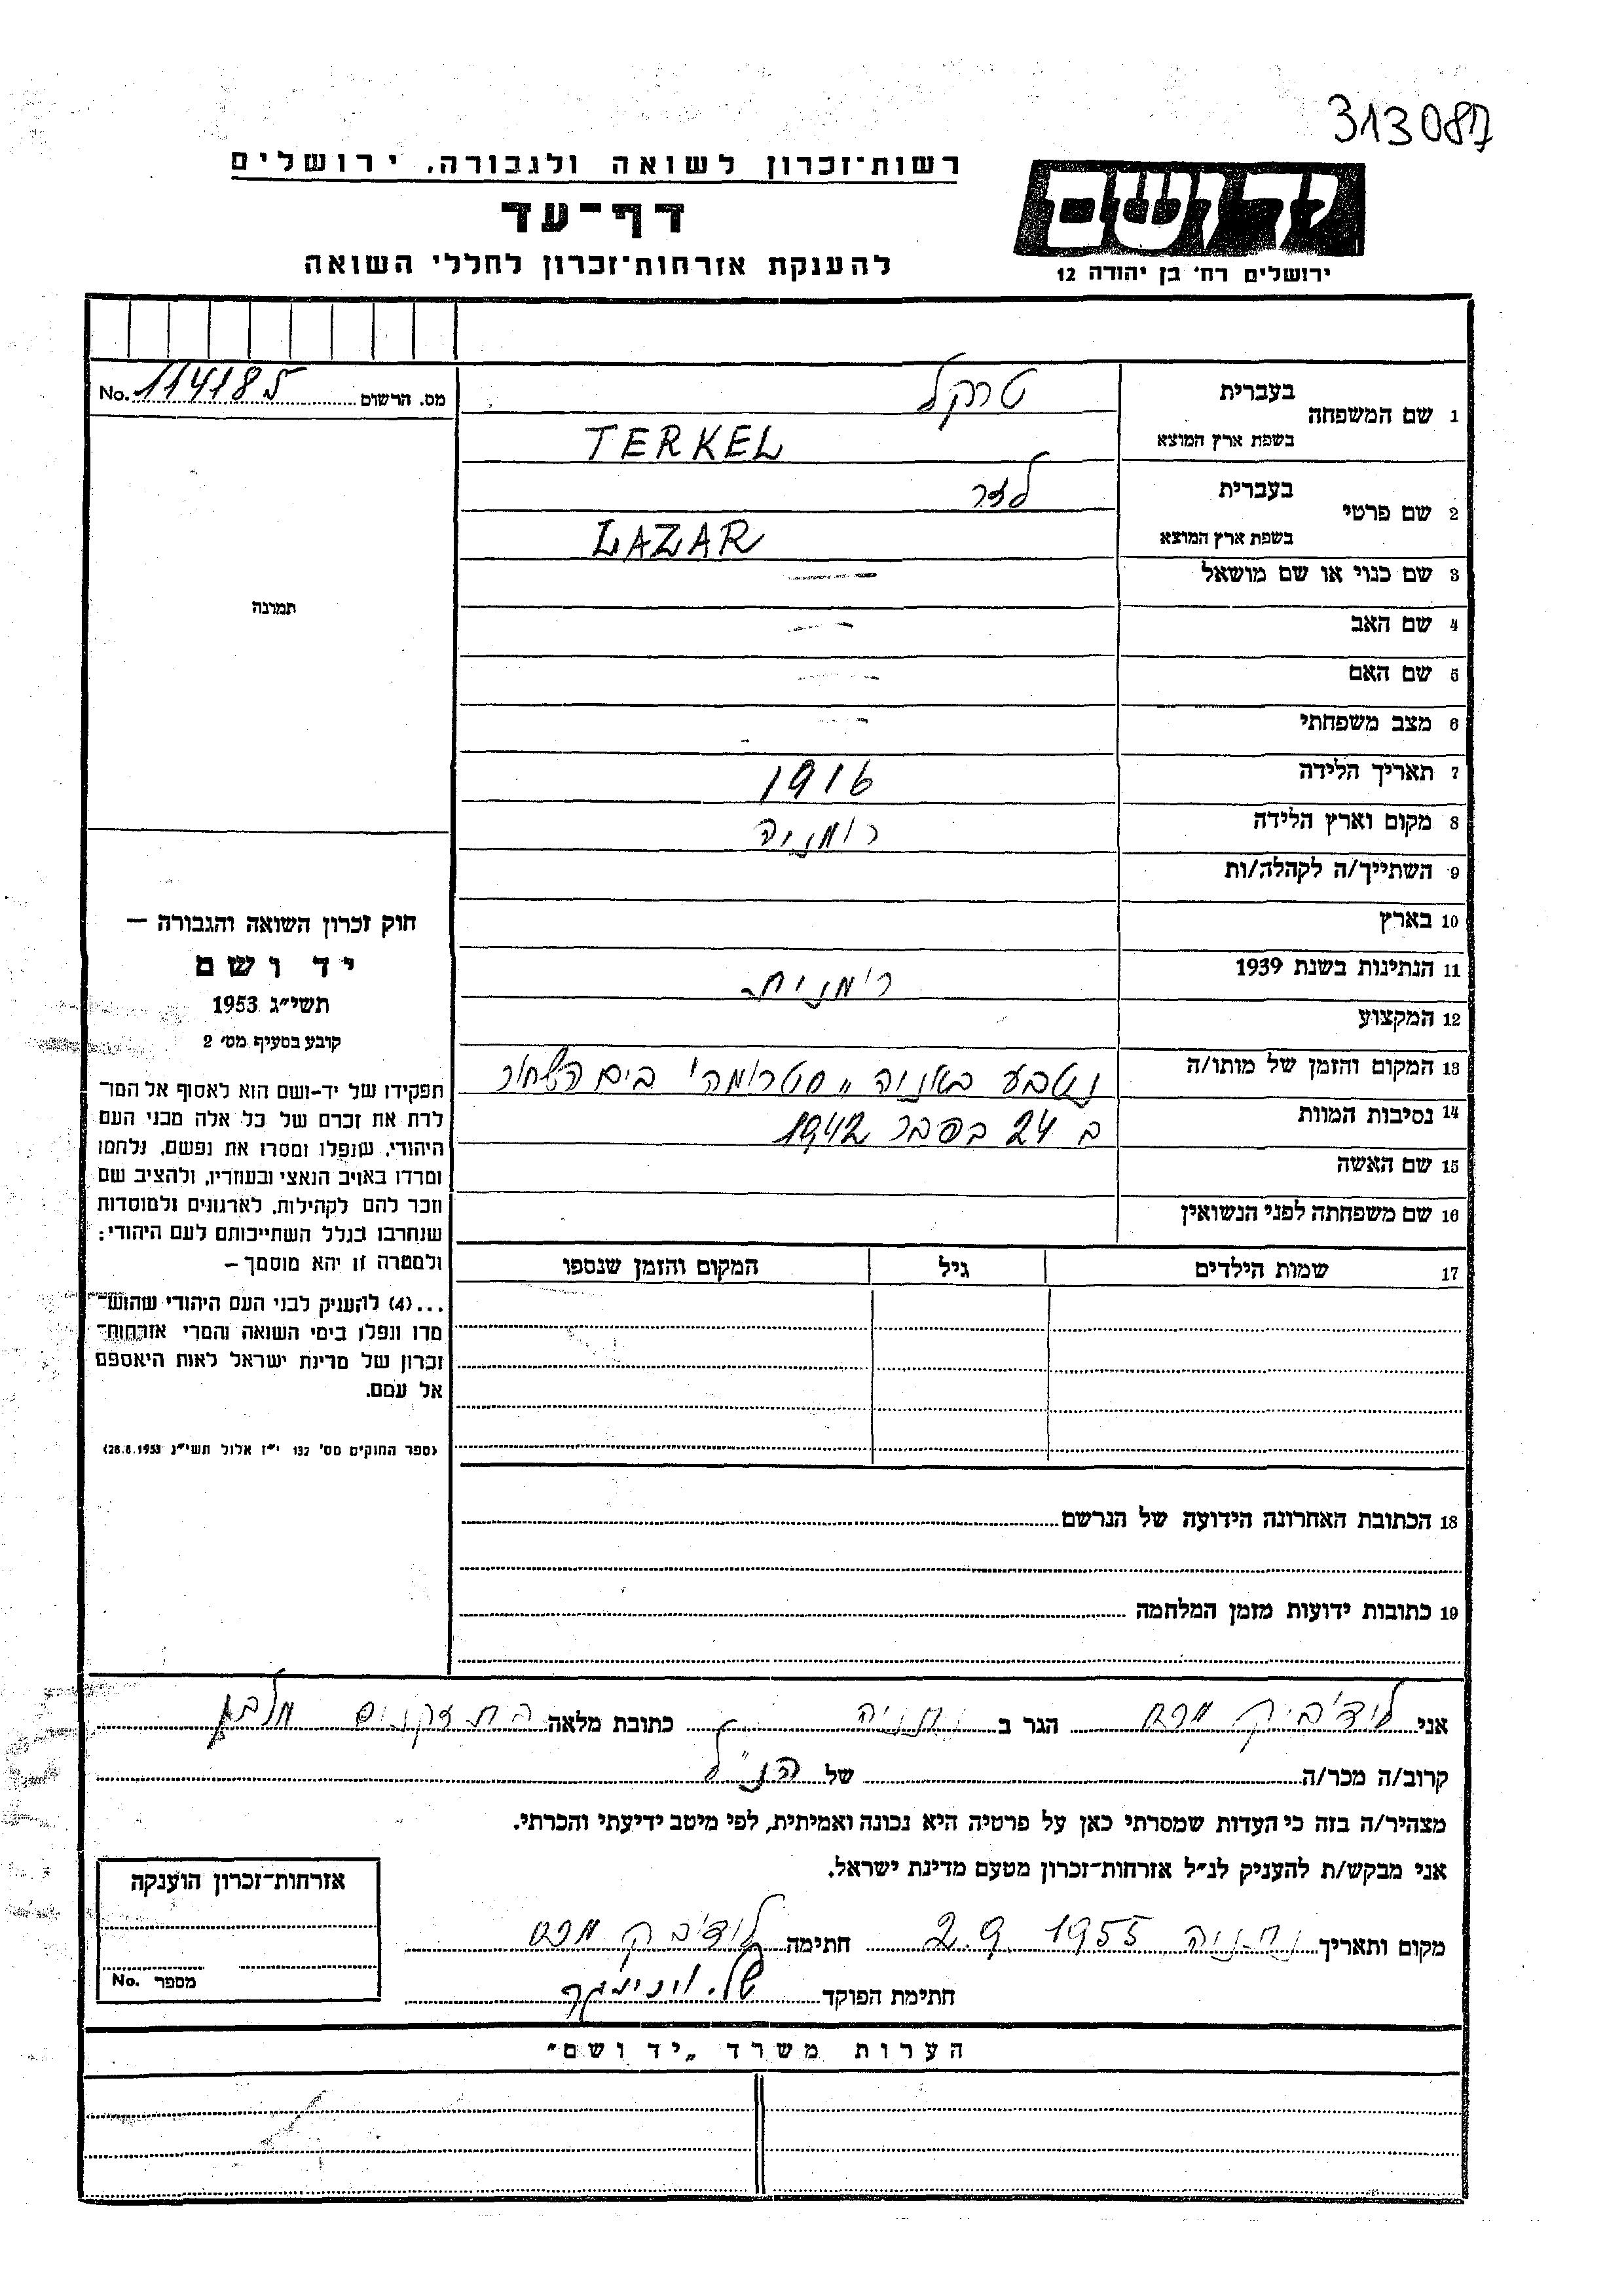 313087
רשות־זכרון לשואה ולגבורה, ירושלים
דף־עד
להענקת אזרחות־זכרון לחללי השואה
ידושם
ירושלים רח׳ בן יהודה 12
מס. הרשום 114185 No.
תמונה
חוק זכרון השואה והגבורה —
יד ושם
תשי״ג 1953
קובע בסעיף מס׳ 2
תפקידו של יד-ושם הוא לאסוף אל המו־
לדת את זכרם של כל אלה מבני העם
היהודי, שנפלו ומסרו את נפשם, נלחמו
ומרדו באויב הנאצי ובעוזריו, ולהציב שם
וזכר להם לקהילות, לארגונים ולמוסדות
שנחרבו בגלל השתייכותם לעם היהודי:
ולמטרה זו יהא מוסמך —
...(4) להעניק לבני העם היהודי שהוש־
מדו ונפלו בימי השואה והמרי אזרחות־
זכרון של מדינת ישראל לאות היאספם
אל עמם.
(ספר החוקים מס׳ 132 י״ז אלול תשי״ג 28.8.1953)
1 שם המשפחה
בעברית טרקל
בשפת ארץ המוצא TERKEL
2 שם פרטי
בעברית לזר
בשפת ארץ המוצא LAZAR
3 שם כנוי או שם מושאל —
4 שם האב —
5 שם האם —
6 מצב משפחתי —
7 תאריך הלידה 1916
8 מקום וארץ הלידה רומניה
9 השתייך/ה לקהלה/ות
10 בארץ
11 הנתינות בשנת 1939 רומנית
12 המקצוע
13 המקום והזמן של מותו/ה נטבע באניה „סטרומה״ בים השחור
14 נסיבות המוות ב 24 בפבר 1942
15 שם האשה
16 שם משפחתה לפני הנשואין
17 שמות הילדים גיל המקום והזמן שנספו
18 הכתובת האחרונה הידועה של הנרשם
19 כתובות ידועות מזמן המלחמה
אני הגר ב נתניה כתובת מלאה
קרוב/ה מכר/ה של הנ״ל
מצהיר/ה בזה כי העדות שמסרתי כאן על פרטיה היא נכונה ואמיתית, לפי מיטב ידיעתי והכרתי.
אני מבקש/ת להעניק לנ״ל אזרחות־זכרון מטעם מדינת ישראל.
מקום ותאריך נתניה 2.9.1955 חתימה
חתימת הפוקד
אזרחות־זכרון הוענקה
מספר No.
הערות משרד „יד ושם״